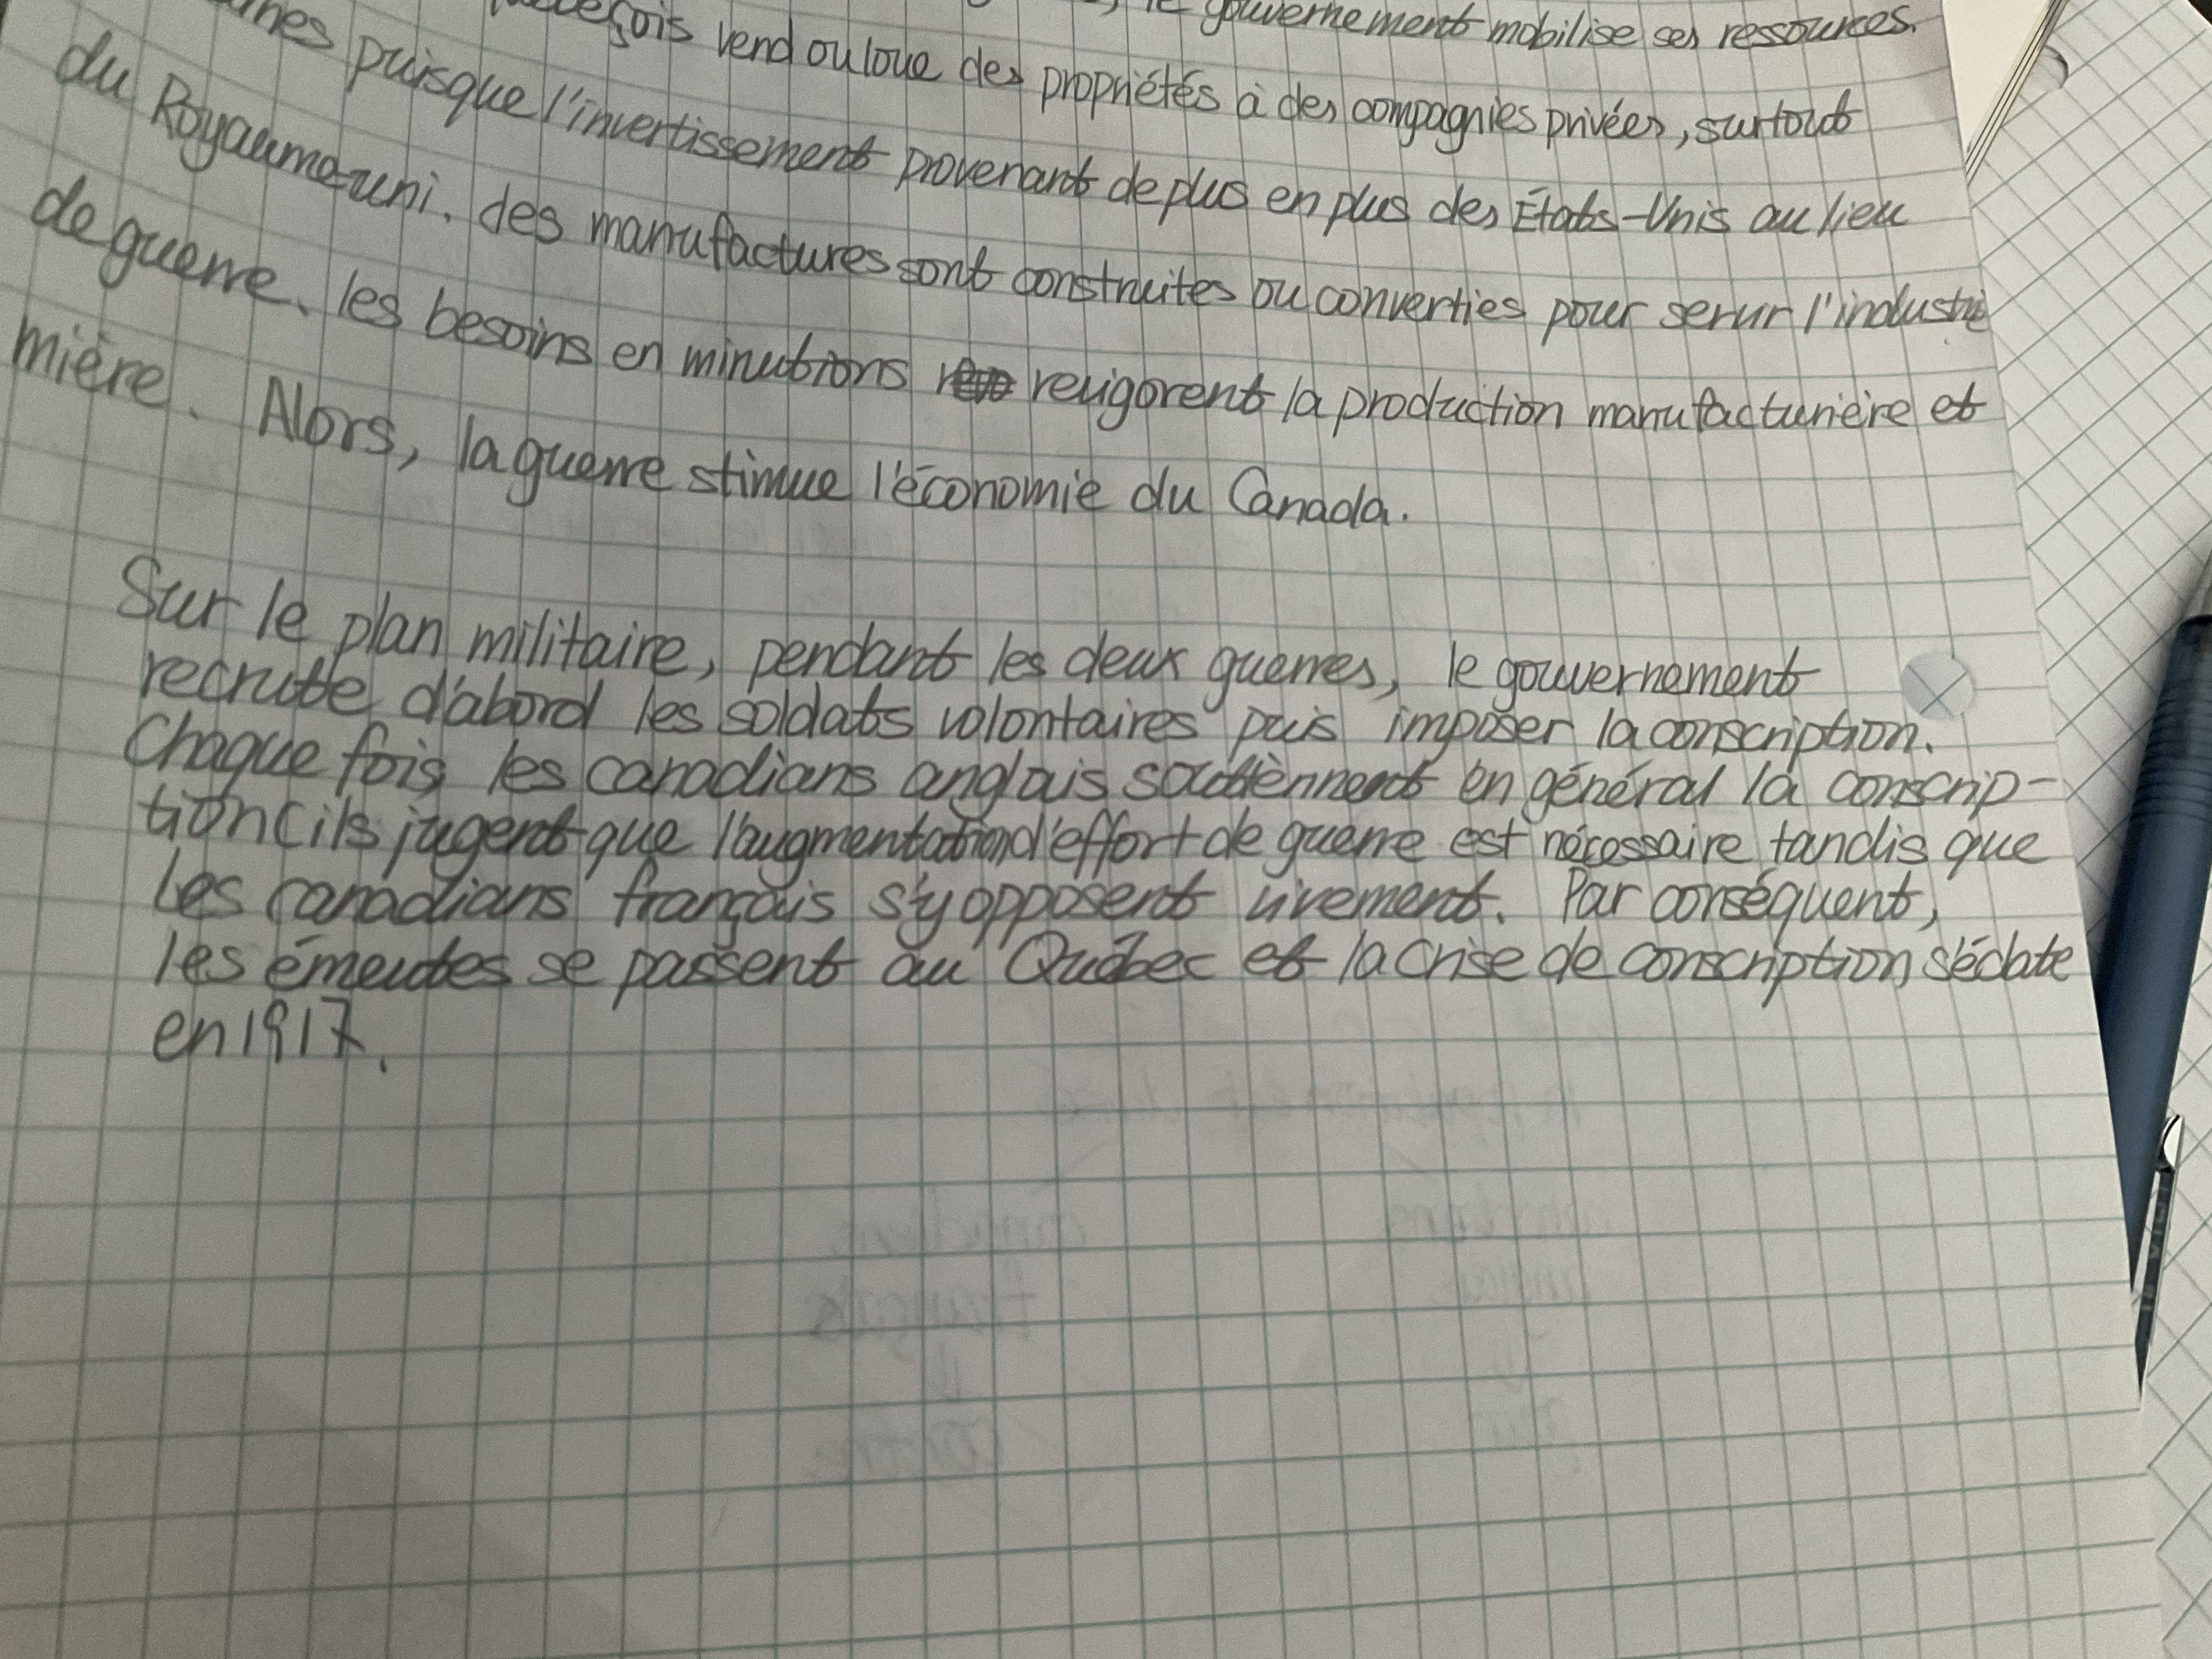 le gouvernement mobilise ses ressources.
vend ou loue des propriétés à des compagnies privées, surtout
puisque l'invertissement provenant de plus en plus des États-Unis au lieu
du Royaume-uni. des manufactures sont construites ou converties pour serur l'industrie
de guerre. les besoins en minutions revigorent la production manufacturière et
mière. Alors, la guerre stimue l'économie du Canada.
Sur le plan militaire, pendant les deux guerres, le gouvernement
recrute d'abord les soldats volontaires puis imposer la conscription.
Chaque fois, les canadians anglais soutiènnent en général la conscrip-
tion (ils jugent que l'augmentation d'effort de guerre est nécessaire tandis que
les canadians français s'y opposent vivement. Par conséquent,
les émeutes se passent au Québec et la crise de conscription s'éclate
en 1917.